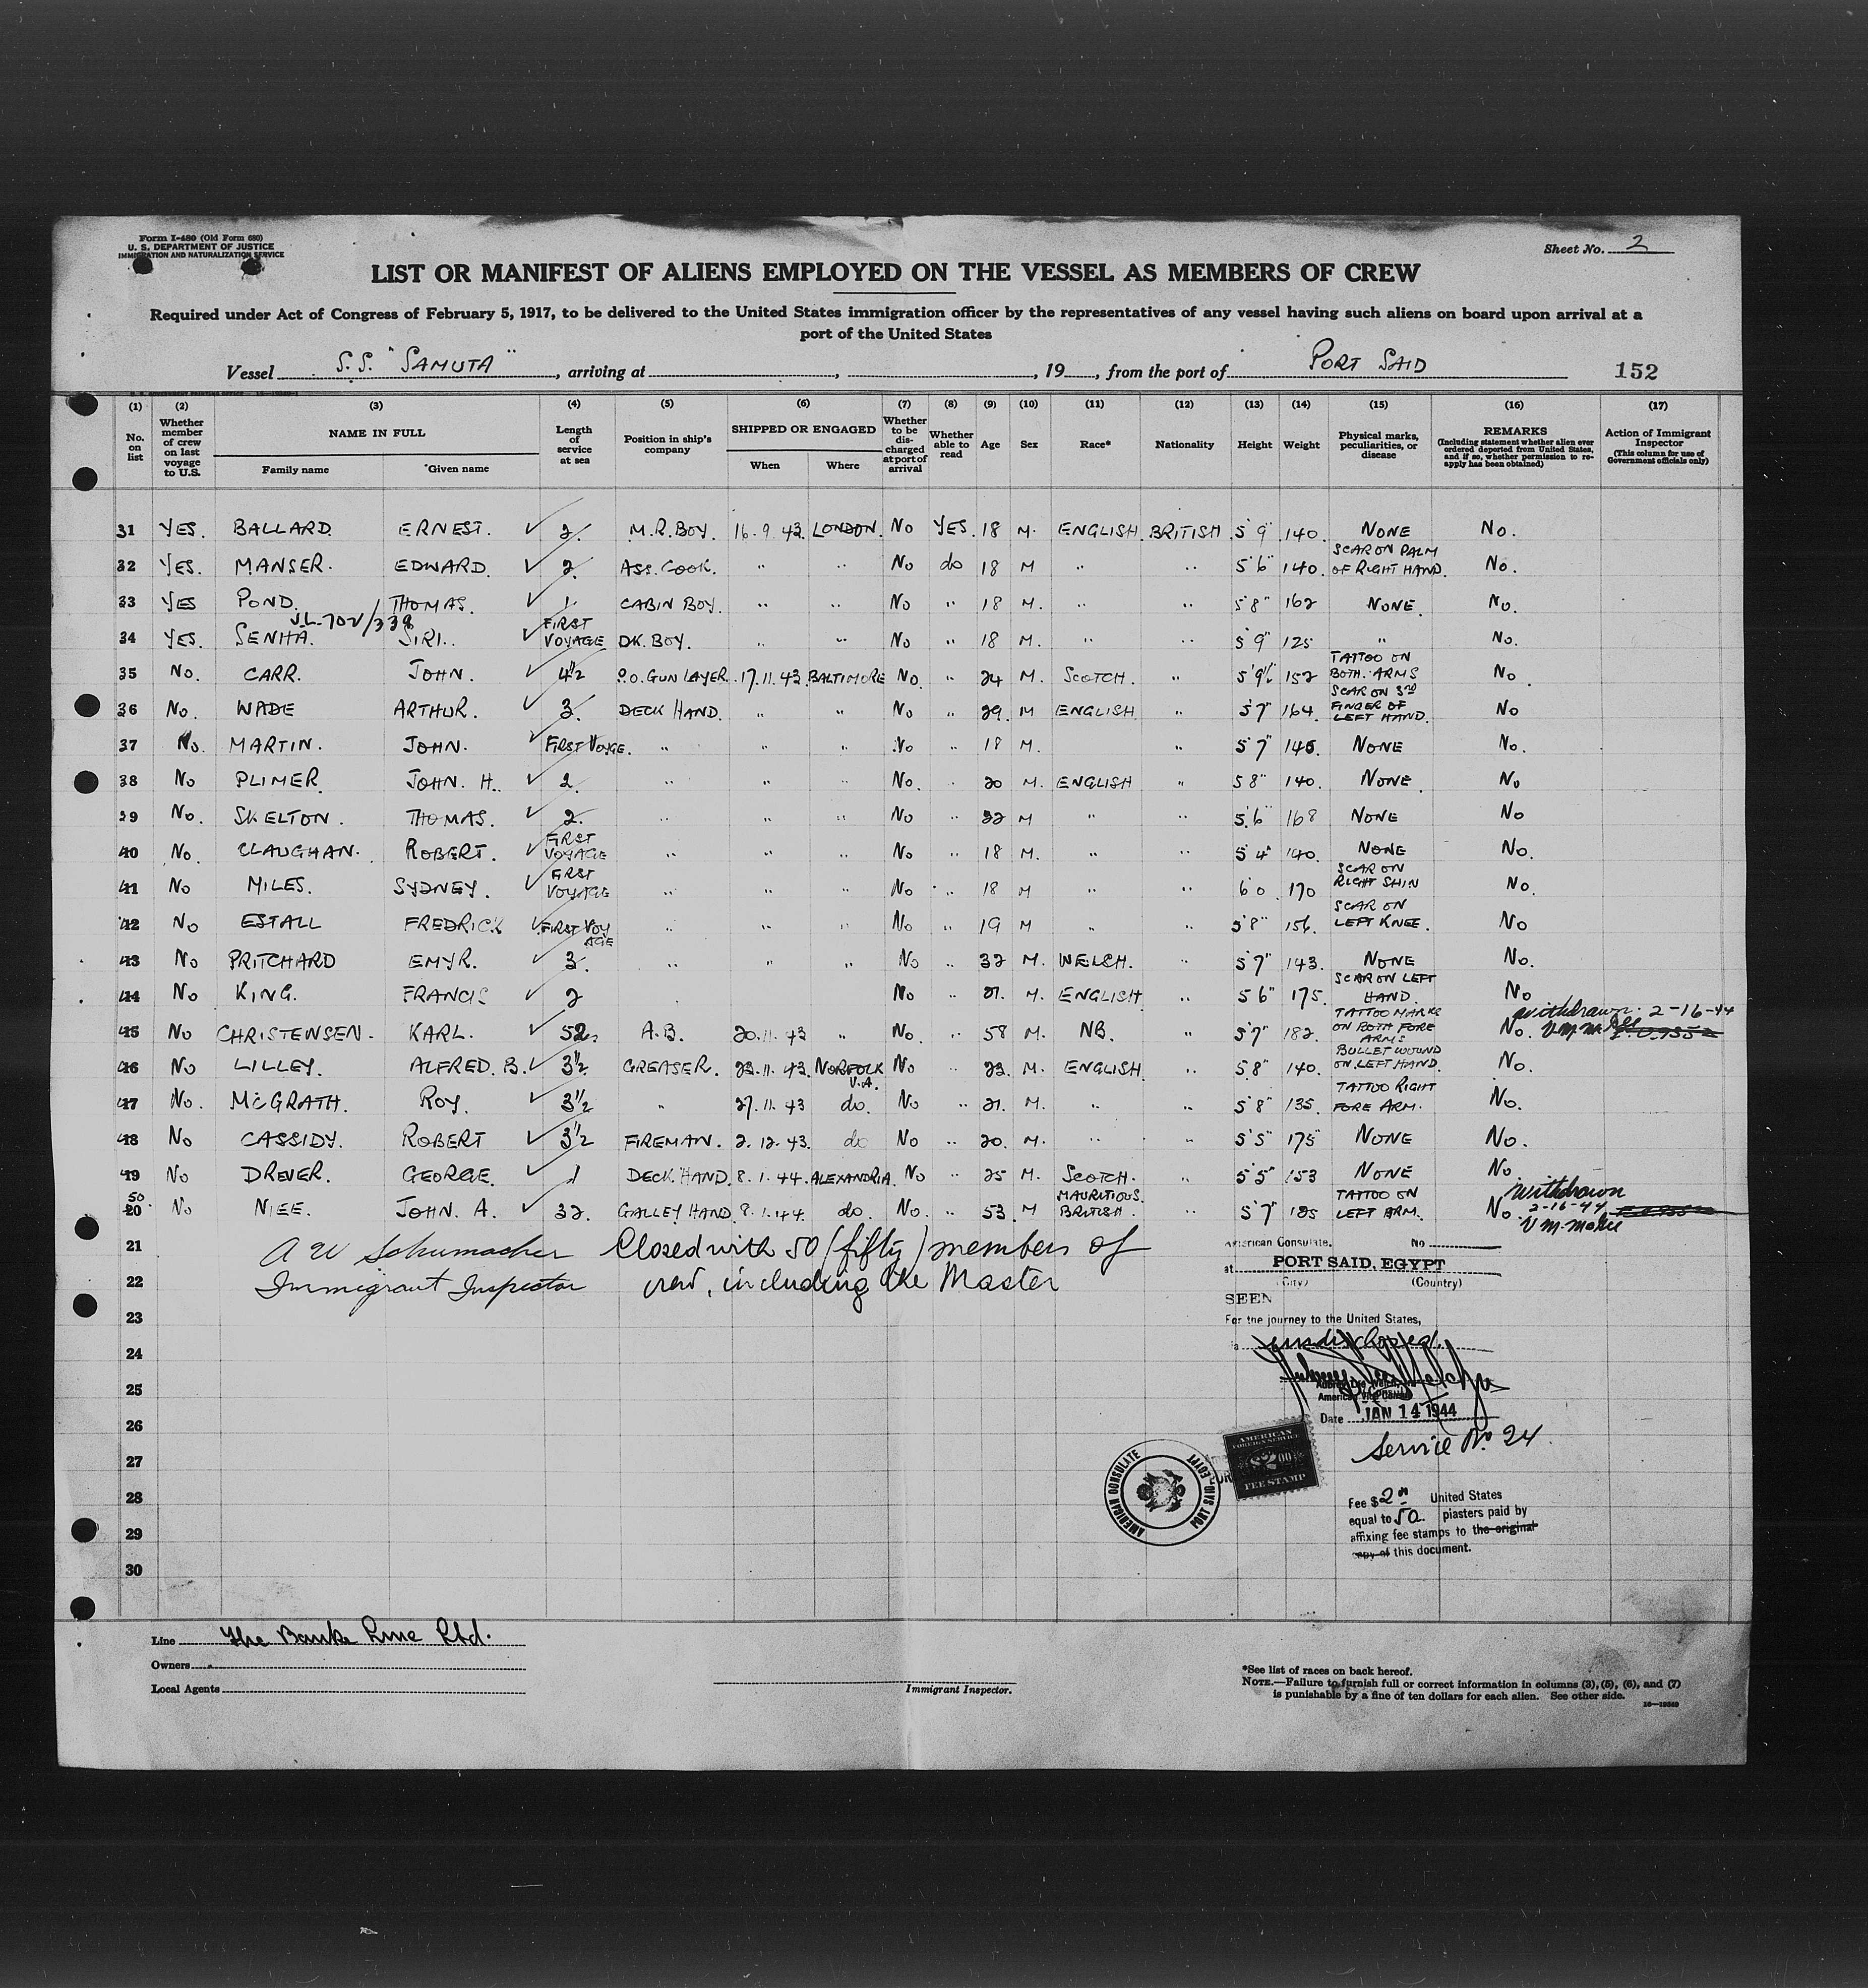 Form I-480 (Old Form 680)
U. S. DEPARTMENT OF JUSTICE
IMMIGRATION AND NATURALIZATION SERVICE
Sheet No. 2
LIST OR MANIFEST OF ALIENS EMPLOYED ON THE VESSEL AS MEMBERS OF CREW
Required under Act of Congress of February 5, 1917, to be delivered to the United States immigration officer by the representatives of any vessel having such aliens on board upon arrival at a
port of the United States
Vessel S.S. "SAMUTA", arriving at , , 19 , from the port of PORT SAID 152
(1) (2) (3) (4) (5) (6) (7) (8) (9) (10) (11) (12) (13) (14) (15) (16) (17)
No. on list
Whether member of crew on last voyage to U.S.
NAME IN FULL
Family name Given name
Length of service at sea
Position in ship's company
SHIPPED OR ENGAGED
When Where
Whether to be discharged at port of arrival
Whether able to read
Age
Sex
Race*
Nationality
Height
Weight
Physical marks, peculiarities, or disease
REMARKS
(Including statement whether alien ever ordered deported from United States, and if so, whether permission to re-apply has been obtained)
Action of Immigrant Inspector
(This column for use of Government officials only)
31 YES. BALLARD ERNEST. 2. M.R. BOY. 16.9.43. LONDON. No YES. 18 M. ENGLISH. BRITISH. 5'9" 140. NONE No.
32 YES. MANSER. EDWARD. 2. ASS. COOK. " " No do 18 M " " 5'6" 140. SCAR ON PALM OF RIGHT HAND. No.
33 YES POND. THOMAS. 1. CABIN BOY. " " No " 18 M. " " 5'8" 162 NONE. No.
34 YES. SENHA. SIRI. FIRST VOYAGE DK. BOY. " " No " 18 M. " " 5'9" 125 " No.
35 No. CARR. JOHN. 4½ P.O. GUN LAYER. 17.11.43. BALTIMORE No. " 24 M. SCOTCH. " 5'9½" 152 TATTOO ON BOTH ARMS No
36 No. WADE ARTHUR. 3. DECK HAND. " " No " 29. M ENGLISH. " 5'7" 164. SCAR ON 3rd FINGER OF LEFT HAND. No
37 No. MARTIN. JOHN. FIRST VOYGE. " " " No " 18 M. " 5'7" 145. NONE No.
38 No PLIMER. JOHN. H. 2. " " " No. " 20 M. ENGLISH " 5'8" 140. NONE. No
39 No. SKELTON. THOMAS. 2. " " " No " 22 M " " 5'6" 168 NONE No
40 No. CLAUGHAN. ROBERT. FIRST VOYAGE " " " No " 18 M. " " 5'4" 140. NONE No.
41 No MILES. SYDNEY. FIRST VOYAGE " " " No " 18 M " " 6'0 170 SCAR ON RIGHT SHIN No.
42 No ESTALL FREDRICK FIRST VOYAGE " " " No " 19 M " " 5'8" 156. SCAR ON LEFT KNEE. No
43 No PRITCHARD EMYR. 3. " " " No " 32 M. WELCH. " 5'7" 143. NONE No.
44 No KING. FRANCIS 2 No " 21. M. ENGLISH " 5'6" 175. SCAR ON LEFT HAND. No
45 No CHRISTENSEN. KARL. 52. A.B. 20.11.43 " No. " 58 M. NB. " 5'7" 182. TATTOO MARKS ON BOTH FORE ARMS No. withdrawn. 2-16-44
46 No LILLEY. ALFRED. B. 3½ GREASER. 23.11.43. NORFOLK V.A. No " 23. M. ENGLISH. " 5'8" 140. BULLET WOUND ON LEFT HAND. No.
47 No. McGRATH. ROY. 3½ " 27.11.43 do. No " 21. M. " " 5'8" 135. TATTOO RIGHT FORE ARM. No.
48 No CASSIDY. ROBERT 3½ FIREMAN. 2.12.43. do No " 20. M. " " 5'5" 175 NONE No.
49 No DREVER. GEORGE. 1 DECK HAND. 8.1.44. ALEXANDRIA. No " 25 M. SCOTCH. " 5'5" 153 NONE No
50 No NIEE. JOHN. A. 32. GALLEY HAND. 8.1.44. do. No. " 53. M MAURITIOUS. BRITISH. 5'7" 125 TATTOO ON LEFT ARM. No. withdrawn 2-16-44
21 A W Schumacher Closed with 50 (fifty) members of
22 Immigrant Inspector crew, including the Master
23
24
25
26
27
28
29
30
American Consulate. No
at PORT SAID, EGYPT
(City) (Country)
SEEN
For the journey to the United States,
American Vice Consul
Date JAN 14 1944
Service No. 24
AMERICAN FOREIGN SERVICE
$2.00
FEE STAMP
AMERICAN CONSULATE
PORT SAID, EGYPT
Fee $2.00 United States
equal to 50. piasters paid by
affixing fee stamps to the original
copy of this document.
Line The Bank Line Ltd.
Owners
Local Agents
Immigrant Inspector.
*See list of races on back hereof.
NOTE.—Failure to furnish full or correct information in columns (3), (5), (6), and (7)
is punishable by a fine of ten dollars for each alien. See other side.